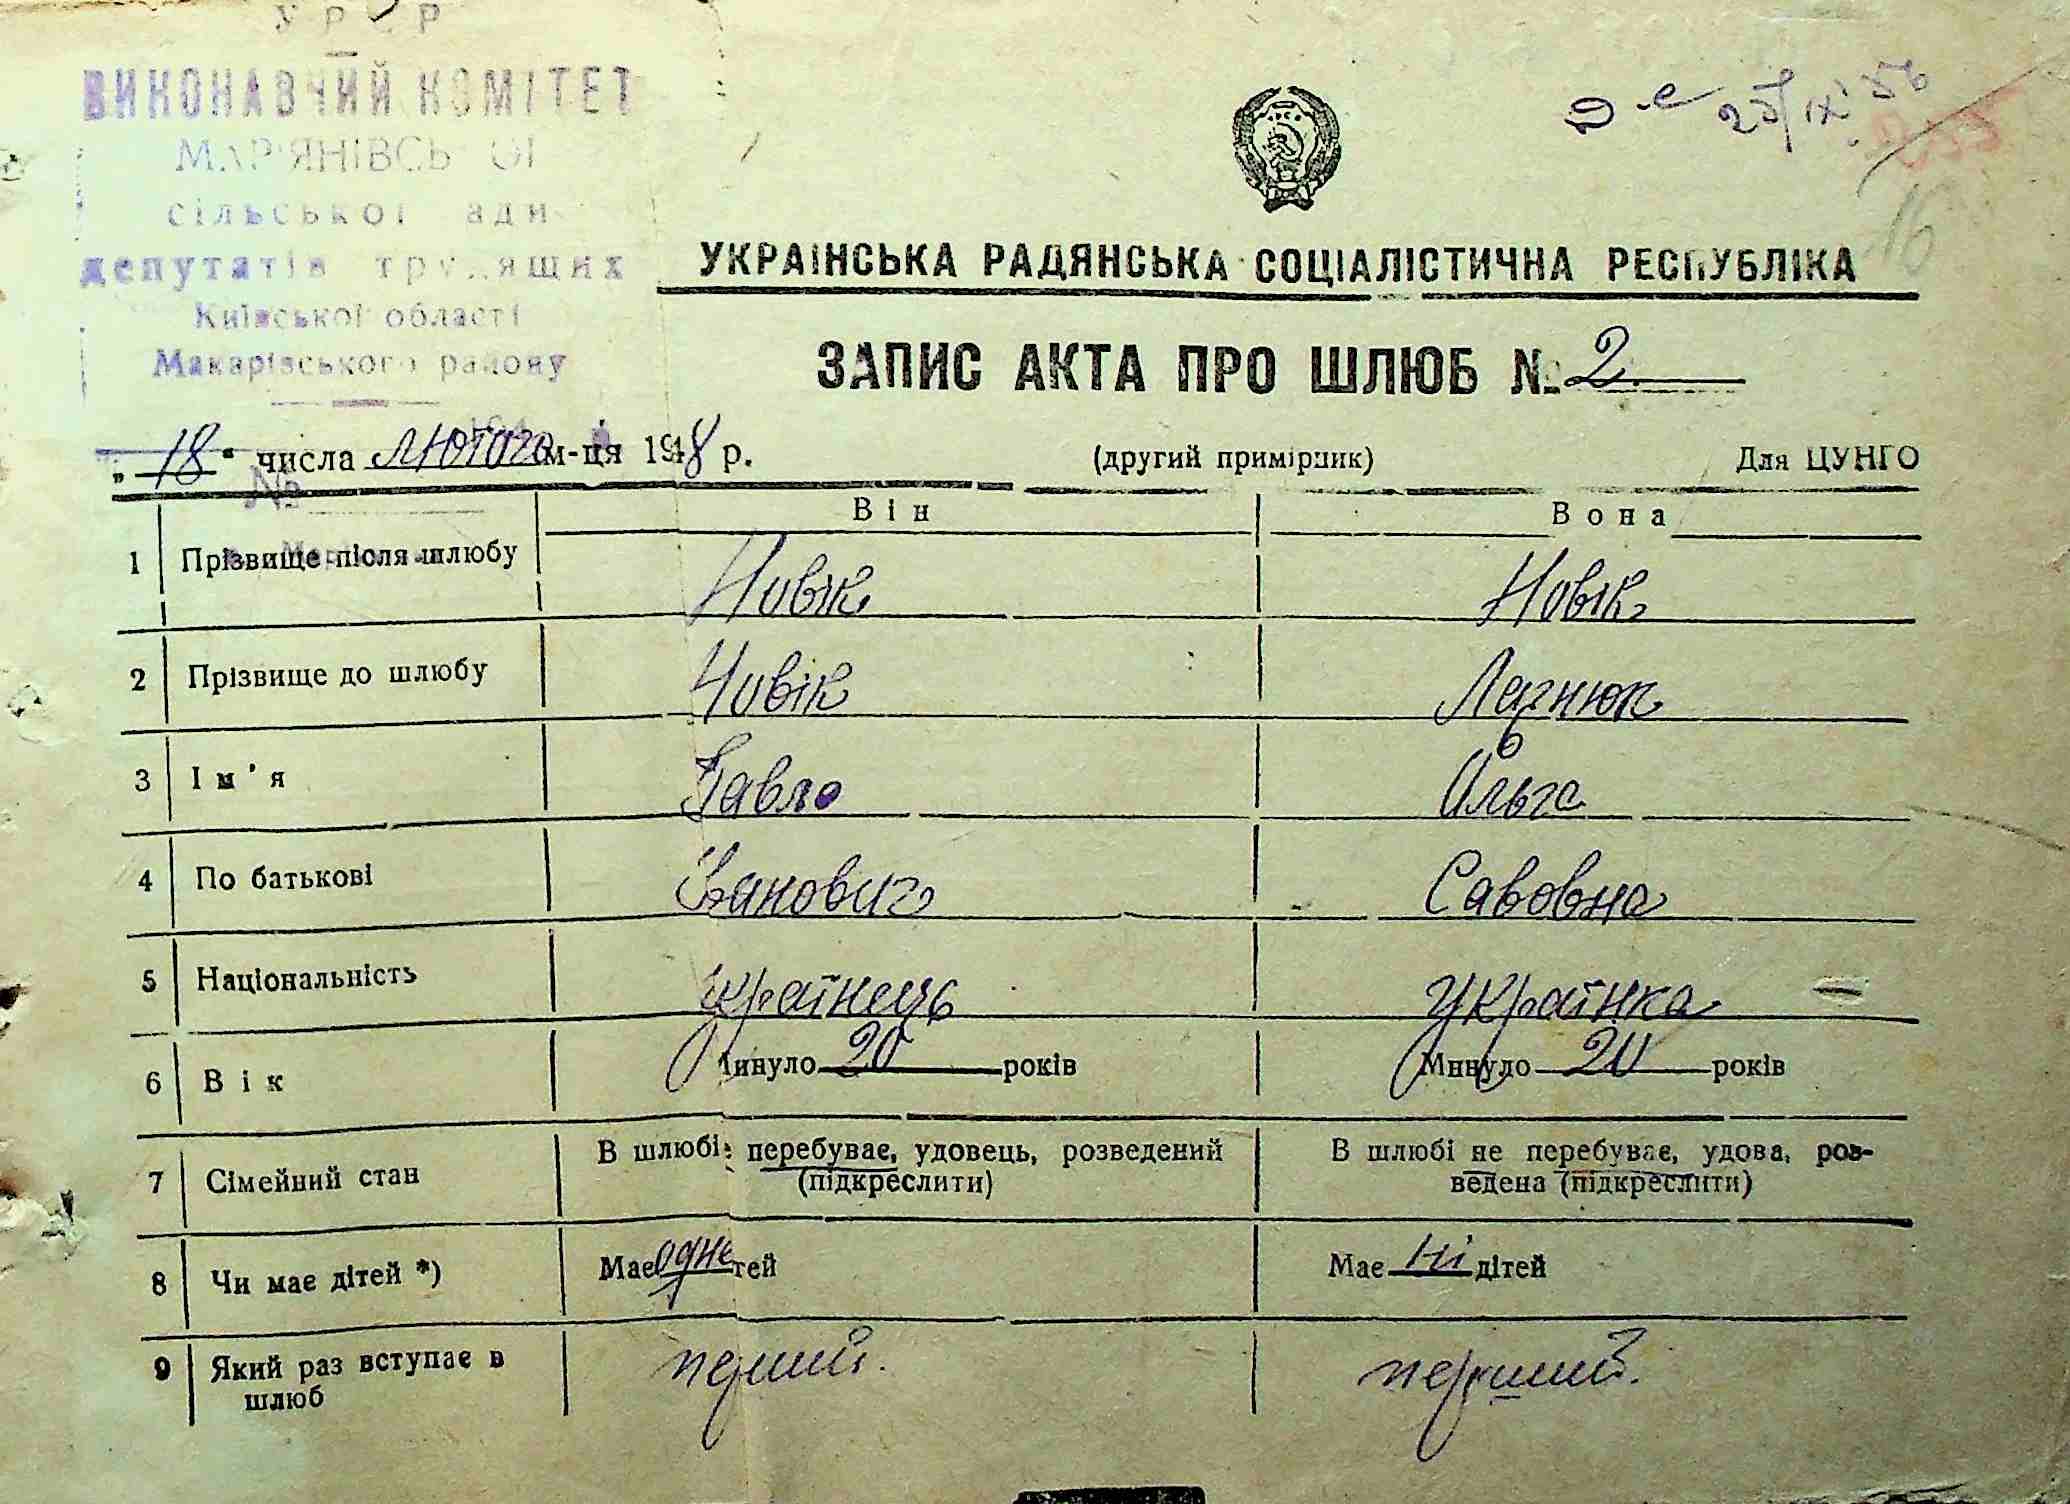 УРСР
ВИКОНАВЧИЙ КОМІТЕТ
МАР'ЯНІВСЬКОЇ
сільської Ради
депутатів трудящих
Київської області
Макарівського району
№
25/IX 56
16
УКРАЇНСЬКА РАДЯНСЬКА СОЦІАЛІСТИЧНА РЕСПУБЛІКА
ЗАПИС АКТА ПРО ШЛЮБ № 2
„18“ числа лютого м-ця 1948 р. (другий примірник) Для ЦУНГО
Він Вона
1 Прізвище після шлюбу Новік Новік
2 Прізвище до шлюбу Новік
3 Ім'я Павло Ольга
4 По батькові Іванович Савовна
5 Національність українець українка
6 Вік Минуло 20 років Минуло 20 років
7 Сімейний стан В шлюбі перебуває, удовець, розведений В шлюбі не перебуває, удова, роз-
(підкреслити) ведена (підкреслити)
8 Чи має дітей *) Має одне тей Має ні дітей
9 Який раз вступає в перший. перший.
шлюб